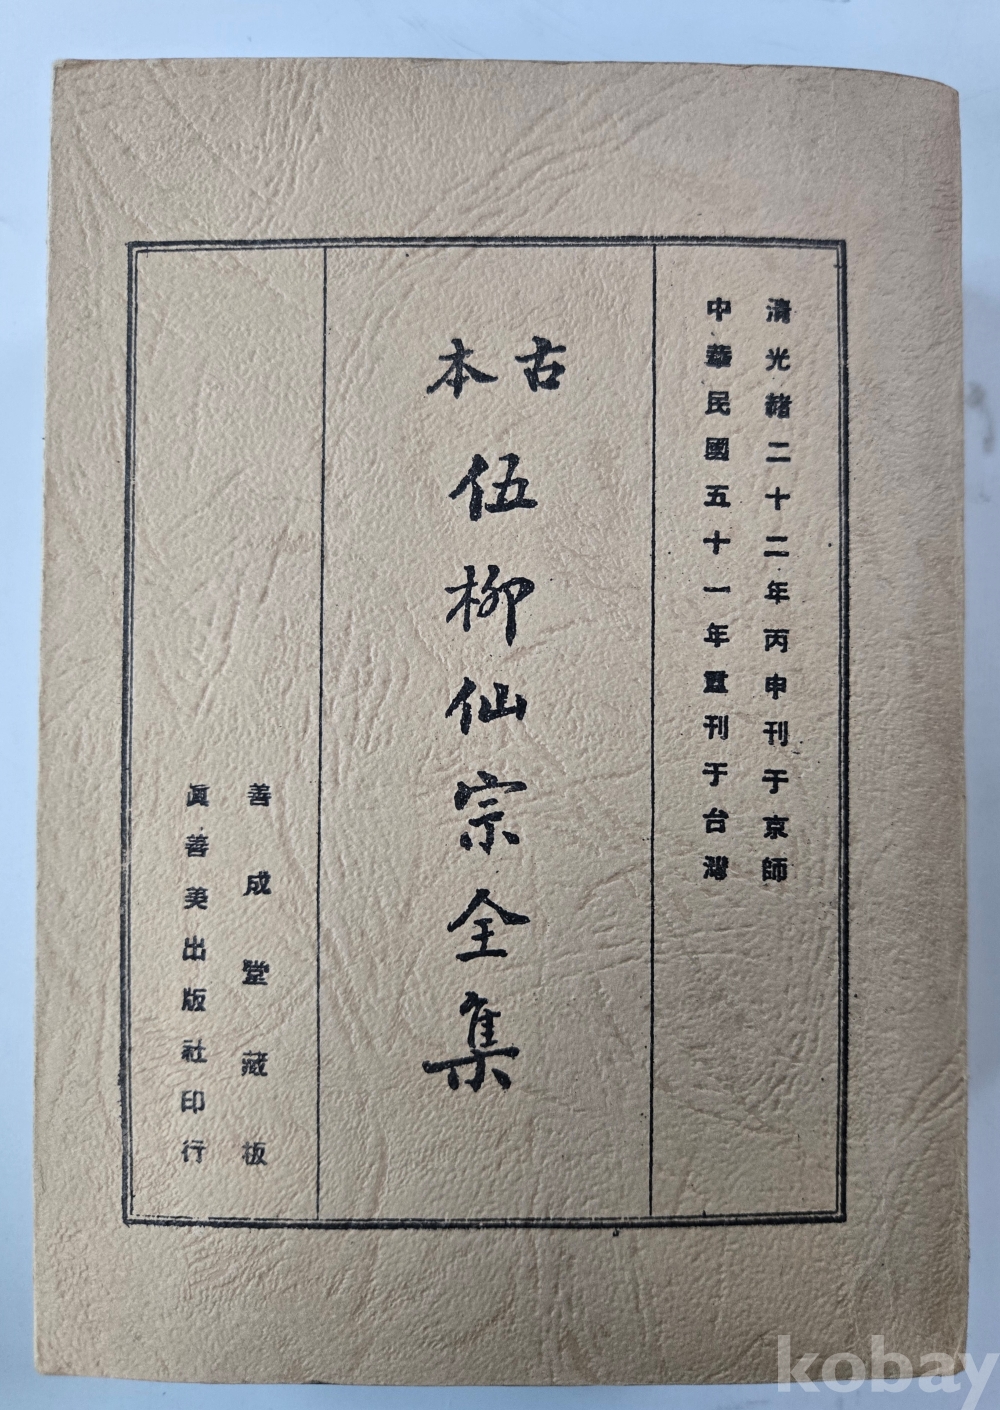 清光緒二十二年丙申刊于京師
中華民國五十一年重刊于台灣
古本
伍柳仙宗全集
善成堂藏板
眞善美出版社印行
kobay